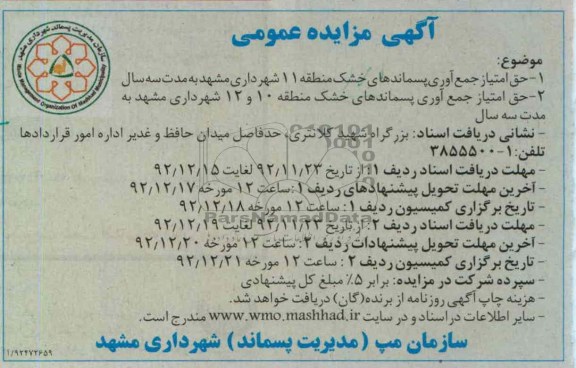 آگهی مزایده عمومی
موضوع:
۱-حق امتیاز جمع آوری پسماندهای خشک منطقه ۱۱ شهرداری مشهد به مدت سه سال
۲-حق امتیاز جمع آوری پسماندهای خشک منطقه ۱۰ و ۱۲ شهرداری مشهد به
مدت سه سال
- نشانی دریافت اسناد: بزرگراه شهید کلانتری، حدفاصل میدان حافظ و غدیر اداره امور قراردادها
تلفن: ۱-۳۸۵۵۵۰۰
- مهلت دریافت اسناد ردیف ۱: از تاریخ ۹۲/۱۱/۲۳ لغایت ۹۲/۱۲/۱۵
- آخرین مهلت تحویل پیشنهادهای ردیف ۱: ساعت ۱۲ مورخه ۹۲/۱۲/۱۷
- تاریخ برگزاری کمیسیون ردیف ۱: ساعت ۱۲ مورخه ۹۲/۱۲/۱۸
- مهلت دریافت اسناد ردیف ۲: از تاریخ ۹۲/۱۱/۲۳ لغایت ۹۲/۱۲/۱۹
- آخرین مهلت تحویل پیشنهادات ردیف ۲: ساعت ۱۲ مورخه ۹۲/۱۲/۲۰
- تاریخ برگزاری کمیسیون ردیف ۲: ساعت ۱۲ مورخه ۹۲/۱۲/۲۱
- سپرده شرکت در مزایده: برابر ۵٪ مبلغ کل پیشنهادی
- هزینه چاپ آگهی روزنامه از برنده(گان) دریافت خواهد شد.
- سایر اطلاعات در اسناد و در سایت www.wmo.mashhad.ir مندرج است.
سازمان مپ (مدیریت پسماند) شهرداری مشهد
۱/۹۲۴۷۲۶۵۹
سازمان مدیریت پسماند شهرداری مشهد
Waste Management Organization Of Mashhad Municipality
ParsNamadData